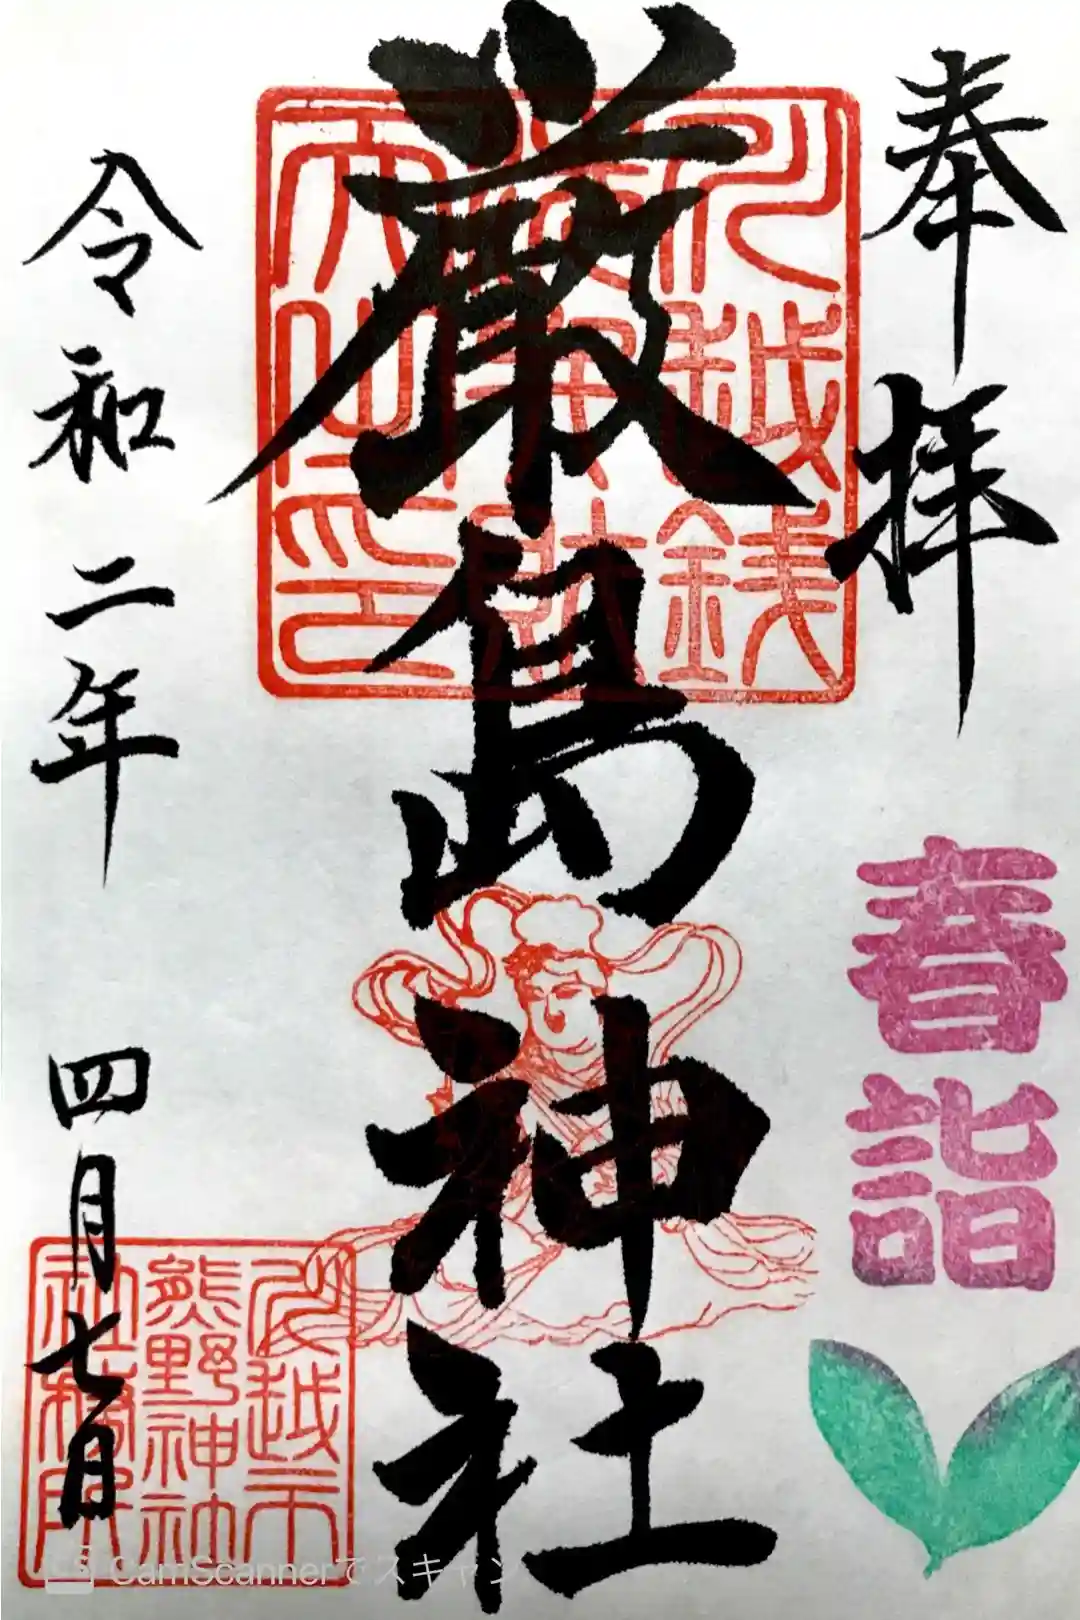 奉拝
春詣
厳島神社
川越銭洗弁財天之印
令和二年 四月七日
川越市熊野神社務所
CamScannerでスキャン